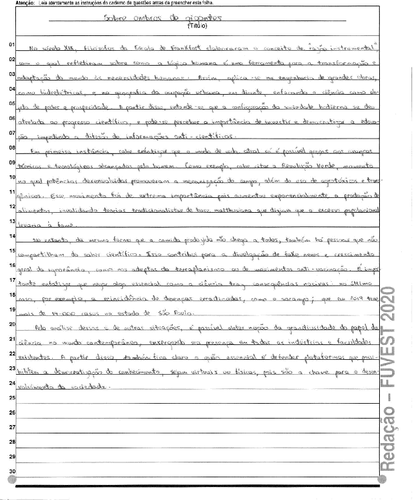 Atenção: Leia atentamente as instruções do caderno de questões antes de preencher esta folha.
Sobre ombros de gigantes
(Título)
01 No século XX, filósofos da Escola de Frankfurt elaboraram o conceito de "razão instrumental"
02 com o qual refletiram sobre como a lógica humana é uma ferramenta para a transformação e
03 adaptação do mundo às necessidades humanas.
04 como hidrelétricas, e na geografia da ocupação urbana,
05 de poder e prosperidade. A partir disso, entende-se que a configuração da sociedade hodierna se deu
06 atrelada ao progresso científico, e pode-se perceber a importância de investir e democratizar a educa-
07 ção, impedindo a difusão de informações anti-científicas.
08 Em primeira instância, cabe enfatizar que o modo de vida atual só é possível graças aos avanços
09 técnicos e tecnológicos alcançados pelo homem. Como exemplo, cabe citar a Revolução Verde, momento
10 no qual potências desenvolvidas promoveram a mecanização do campo, além do uso de agrotóxicos e trans-
11 gênicos. Esse movimento foi de extrema importância pois aumentou exponencialmente a produção de
12 alimentos, invalidando teorias tradicionalistas de base malthusiana que diziam que o excesso populacional
13 levaria à fome.
14 No entanto, da mesma forma que a comida produzida não chega a todos, também há pessoas que não
15 compartilham do saber científico. Isso contribui para a divulgação de fake news e crescimento
16 geral da ignorância, como nos adeptos do terraplanismo ou de movimentos anti-vacinação. É impor-
17 tante enfatizar que negar algo essencial como a ciência traz consequências nocivas: no último
18 caso, por exemplo, a reincidência de doenças erradicadas, como o sarampo, que já teve
19 mais de casos no estado de São Paulo.
20 Pela análise dessas e de outras situações, é possível obter noção da grandiosidade do papel da
21 ciência no mundo contemporâneo, em todas as indústrias e faculdades
22 existentes. A partir disso, também fica claro o quão essencial é defender plataformas que possi-
23 bilitem a democratização do conhecimento, sejam virtuais ou físicas, pois são a chave para o desen-
24 volvimento da sociedade.
25
26
27
28
29
30
Redação – FUVEST 2020